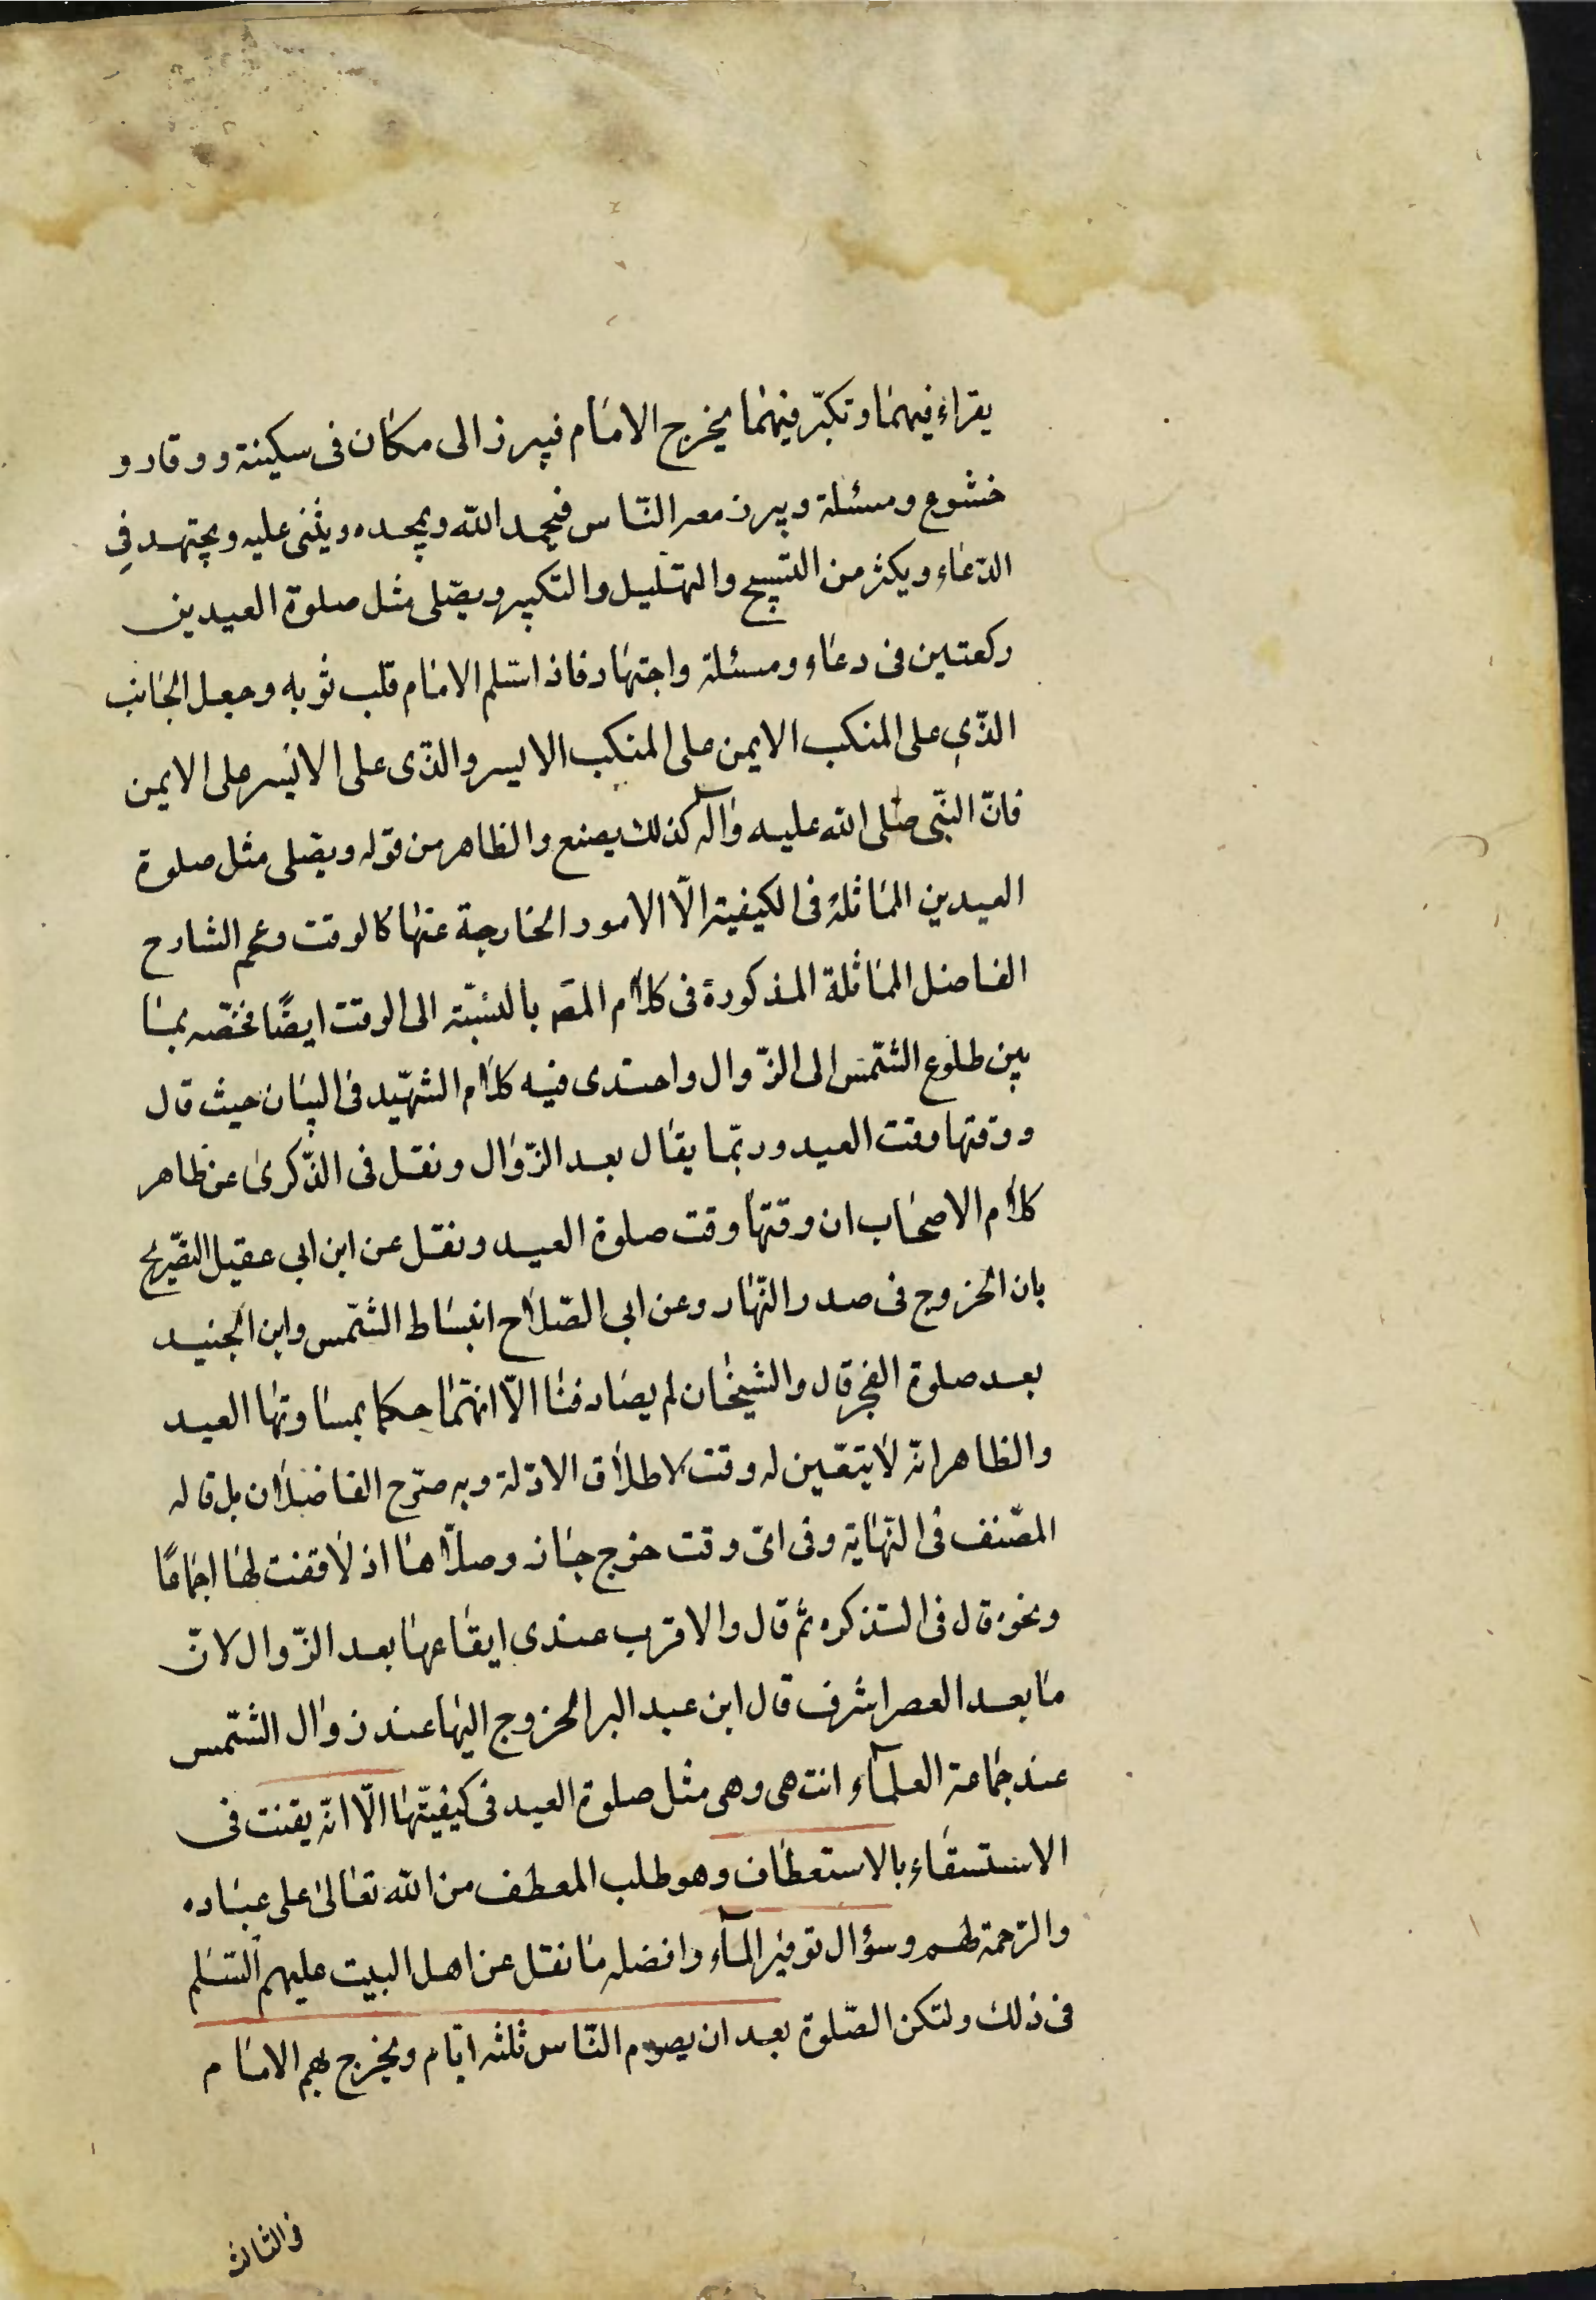 يقراء فيهما وتكبّر فيهما يخرج الامام فيبرز الى مكان فى سكينة ووقار و
خشوع ومسئلة ويبرز معه النّاس فيحمد الله ويمجده ويثنى عليه ويجتهد في
الدّعاء ويكثر من التسبيح والتهليل والتكبير ويصّلى مثل صلوة العيدين
ركعتين فى دعاء ومسئلة واجتهاد فاذا سّلم الامام قلب ثوبه وجعل الجانب
الذّي على المنكب الايمن على المنكب الايسر والذّى على الايسر على الايمن
فانّ النّبى صلى الله عليه وآله كذلك يصنع والظاهر من قوله ويصّلى مثل صلوة
العيدين المماثلة فى الكيفية الّا الامور الخارجة عنها كالوقت وعمم الشارح
الفاضل المماثلة المذكورة فى كلام المصَ بالنسّبة الى الوقت ايضًا فخصّه بما
بين طلوع الشّمس الى الزّوال واحتذى فيه كلام الشهّيد فى البيان حيث قال
ووقتها وقت العيد وربّما يقال بعد الزّوال ونقل فى الذّكرى عن ظاهر
كلام الاصحاب ان وقتها وقت صلوة العيد ونقل عن ابن ابي عقيل التصّريح
بان الخروج فى صدر النّهار وعن ابى الصّلاح انبساط الشّمس وابن الجنيد
بعد صلوة الفجر قال والشيخان لم يصادفنا الّا انهّما حكما بمساوتها العيد
والظاهر انّه لا يتعّين له وقت لاطلاق الادّلة وبه صرّح الفاضلان بل قاله
المصّنف فى النّهاية وفى اىّ وقت خرج جاز وصلّاها اذ لا وقت لها اجماعًا
ونحوه قال فى التذكره ثم قال والاقرب عندى ايقاعها بعد الزّوال لانّ
ما بعد العصر اشرف قال ابن عبد البر الخروج اليها عند زوال الشّمس
عند جماعة العلمآء انتهى وهى مثل صلوة العيد فى كيفيّتها الّا انّه يقنت فى
الاستسقاء بالاستعطاف وهو طلب المعطف من الله تعالى على عباده
والرّحمة لهم وسؤال توفير المآء وافضله ما نقل عن اهل البيت عليهم السّلم
فى ذلك ولتكن الصّلوة بعد ان يصوم النّاس ثلثه ايّام ويخرج بهم الامام
فى الثالث